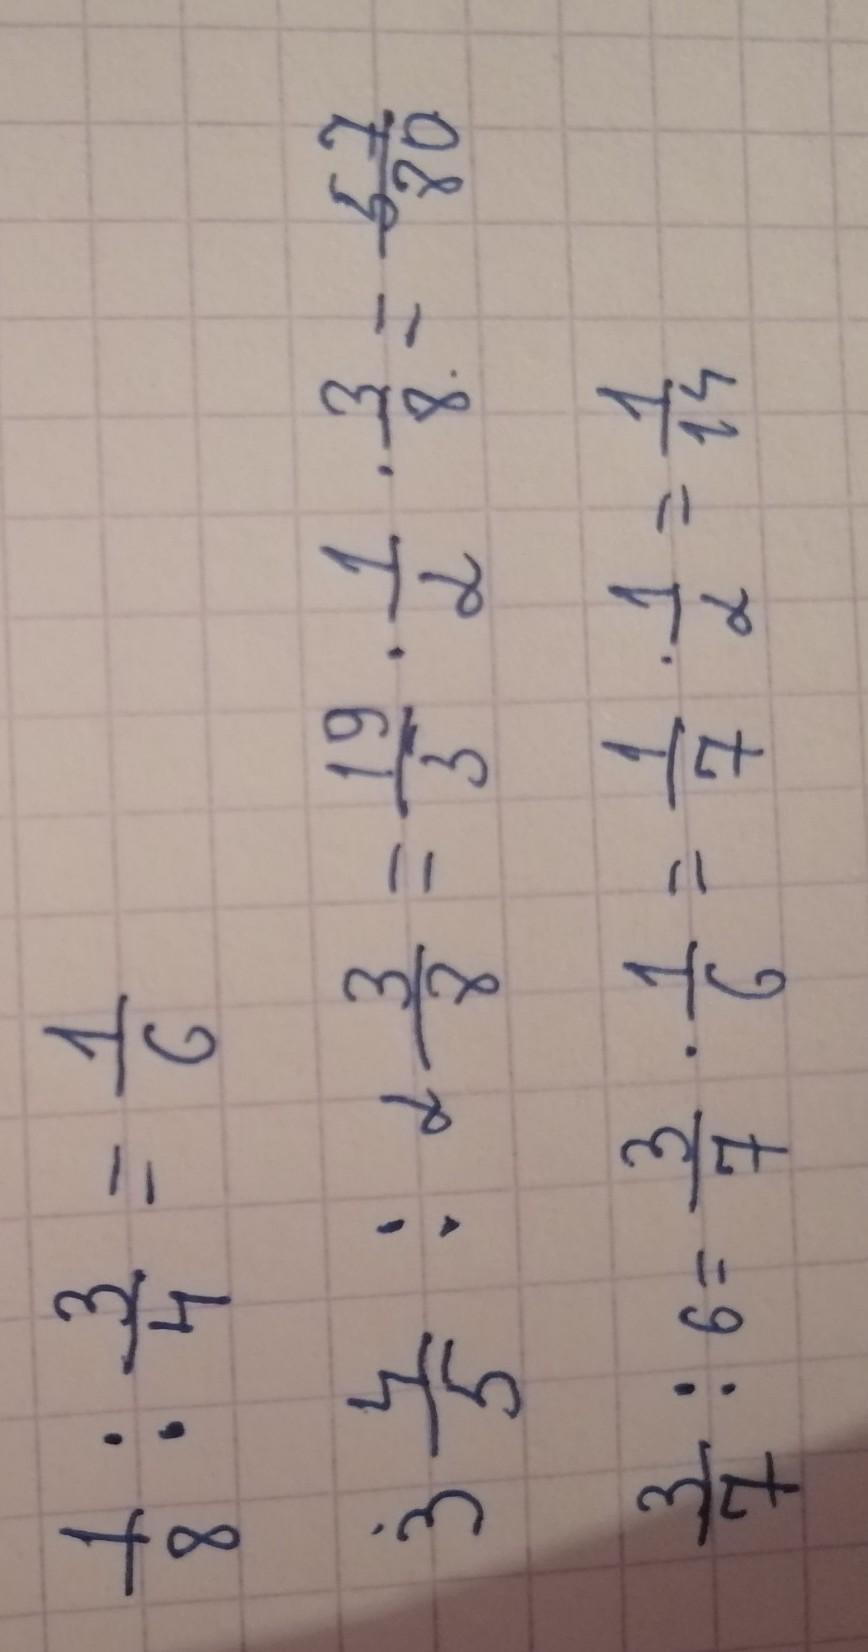 1/8 : 3/4 = 1/6
3 4/5 : 2 3/8 = 19/3 · 1/2 · 3/8 = 57/80
3/7 : 6 = 3/7 · 1/6 = 1/7 · 1/2 = 1/14